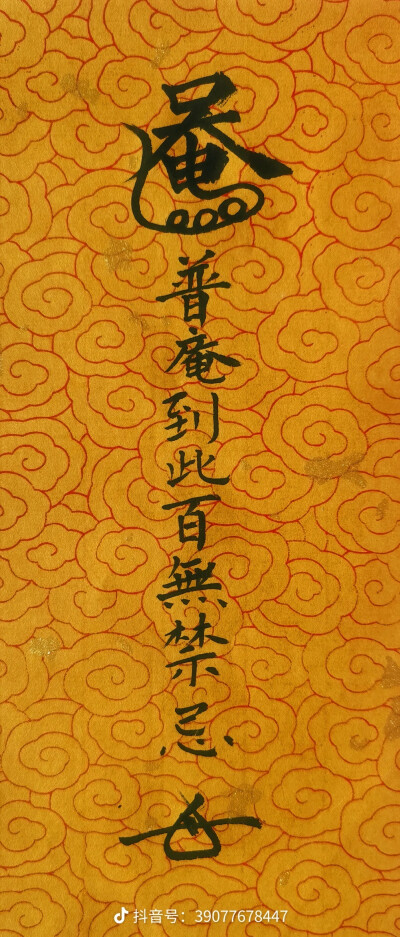 普庵到此百無禁忌
抖音号：39077678447